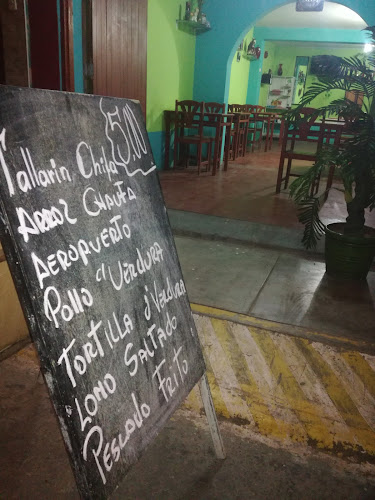 5.00
Tallarin Chifa
ARROZ CHAUFA
AEROPUERTO
Pollo c/ VERDURA
TORTILLA d' VERDURA
LOMO SALTADO
PESCADO FRITO